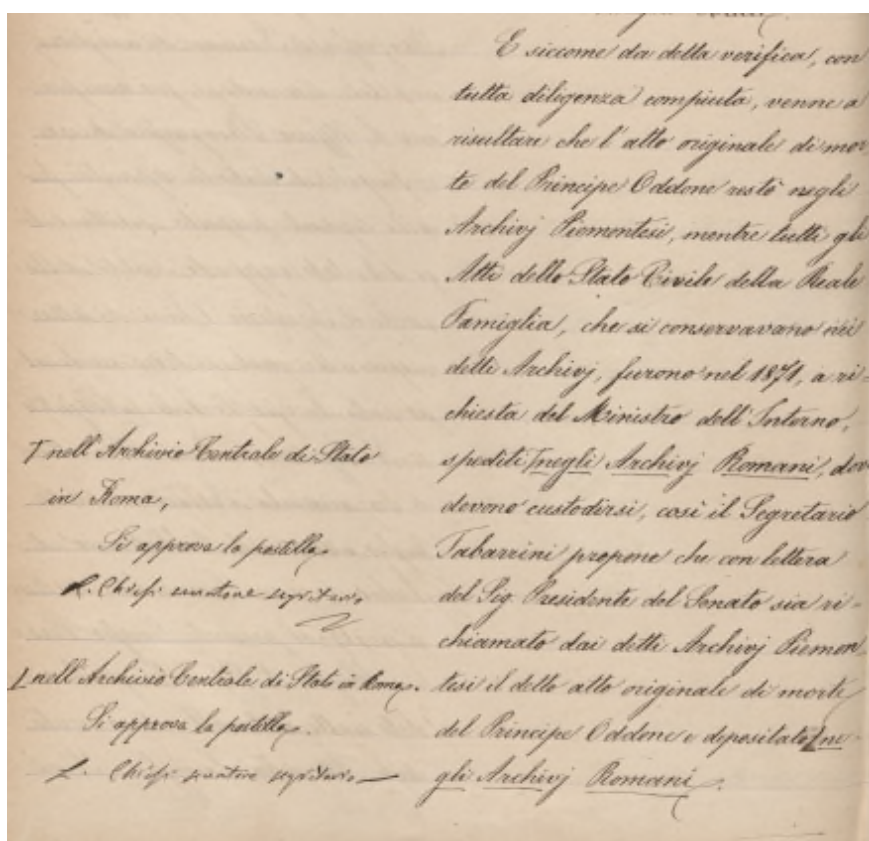 E siccome da detta verifica, con
tutta diligenza compiuta, venne a
risultare che l'atto originale di mor-
te del Principe Oddone restò negli
Archivj Piemontesi, mentre tutti gli
Atti dello Stato Civile della Reale
Famiglia, che si conservavano nei
detti Archivj, furono nel 1871, a ri-
chiesta del Ministro dell'Interno,
spediti negli Archivj Romani, dov
devono custodirsi, così il Segretario
Tabarrini propone che con lettera
del Sig. Presidente del Senato sia ri-
chiamato dai detti Archivj Piemon-
tesi il detto atto originale di morte
del Principe Oddone e depositato ne-
gli Archivj Romani.
nell'Archivio Centrale di Stato
in Roma,
Si approva la postilla
L. Chiesi senatore segretario
nell'Archivio Centrale di Stato in Roma.
Si approva la postilla
L. Chiesi senatore segretario